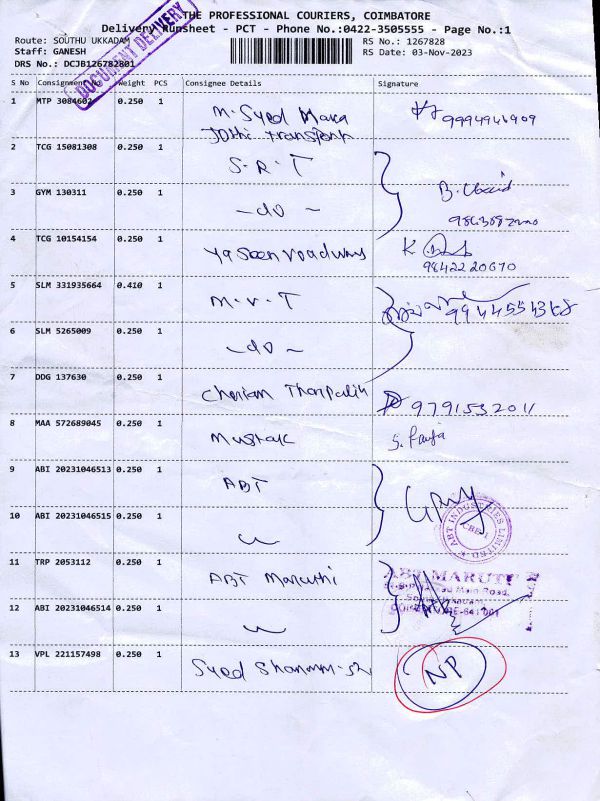 THE PROFESSIONAL COURIERS, COIMBATORE
Delivery Runsheet - PCT - Phone No.:0422-3505555 - Page No.:1
Route: SOUTHU UKKADAM
RS No.: 1267828
Staff: GANESH
RS Date: 03-Nov-2023
DRS No.: DCJB126782801
DOCUMENT DELIVERY
S No Consignment No Weight PCS Consignee Details Signature
1 MTP 3084602 0.250 1 M. Syed
Jothi Transport 9994946909
2 TCG 15081308 0.250 1 S. R. T
3 GYM 130311 0.250 1 - do -
4 TCG 10154154 0.250 1 Yaseen roadways K
9842220670
5 SLM 331935664 0.410 1 M. V. T
6 SLM 5265009 0.250 1 - do -
7 DDG 137630 0.250 1 Cherian 9791532011
8 MAA 572689045 0.250 1 Mustak S.
9 ABI 20231046513 0.250 1 ABT
10 ABI 20231046515 0.250 1
ABT INDUSTRIES LIMITED
CBE-1
11 TRP 2053112 0.250 1 ABT Maruthi
ABT MARUTI
Main Road,
COIMBATORE-641 001
12 ABI 20231046514 0.250 1
13 VPL 221157498 0.250 1 Syed NP